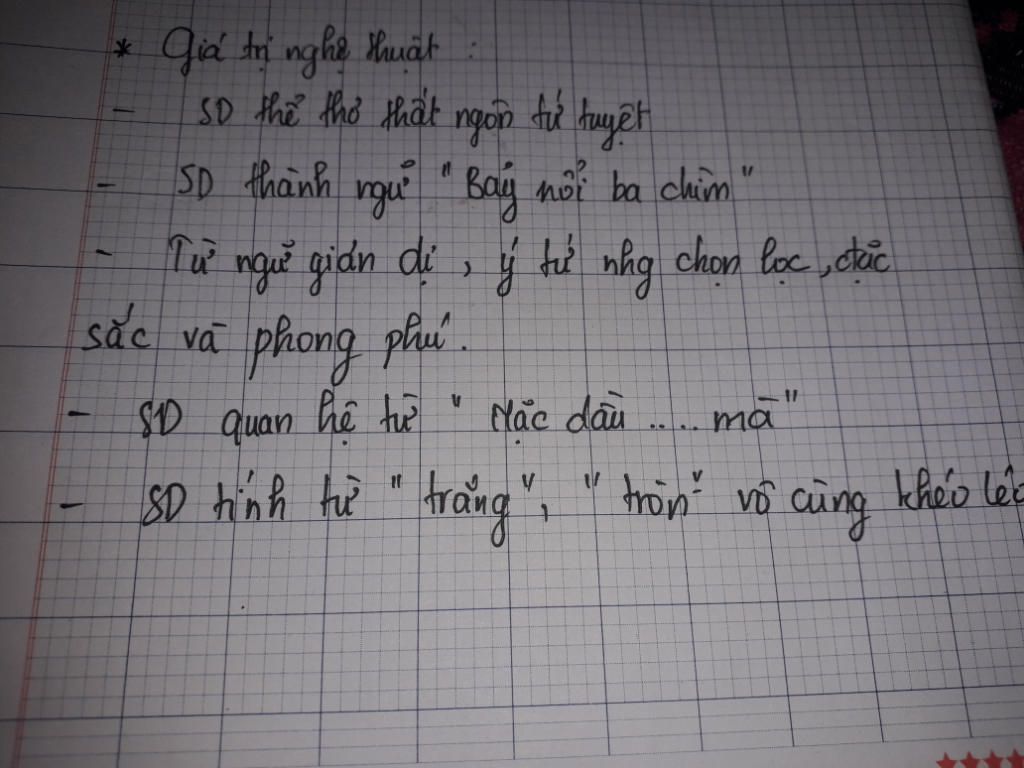 * Giá trị nghệ thuật :
- SD thể thơ thất ngôn tứ tuyệt
- SD thành ngữ "Bảy nổi ba chìm"
- Từ ngữ giản dị, ý tứ nhg chọn lọc, đặc
sắc và phong phú.
- SD quan hệ từ "Mặc dầu .... mà"
- SD tính từ "trắng", "tròn" vô cùng khéo léo